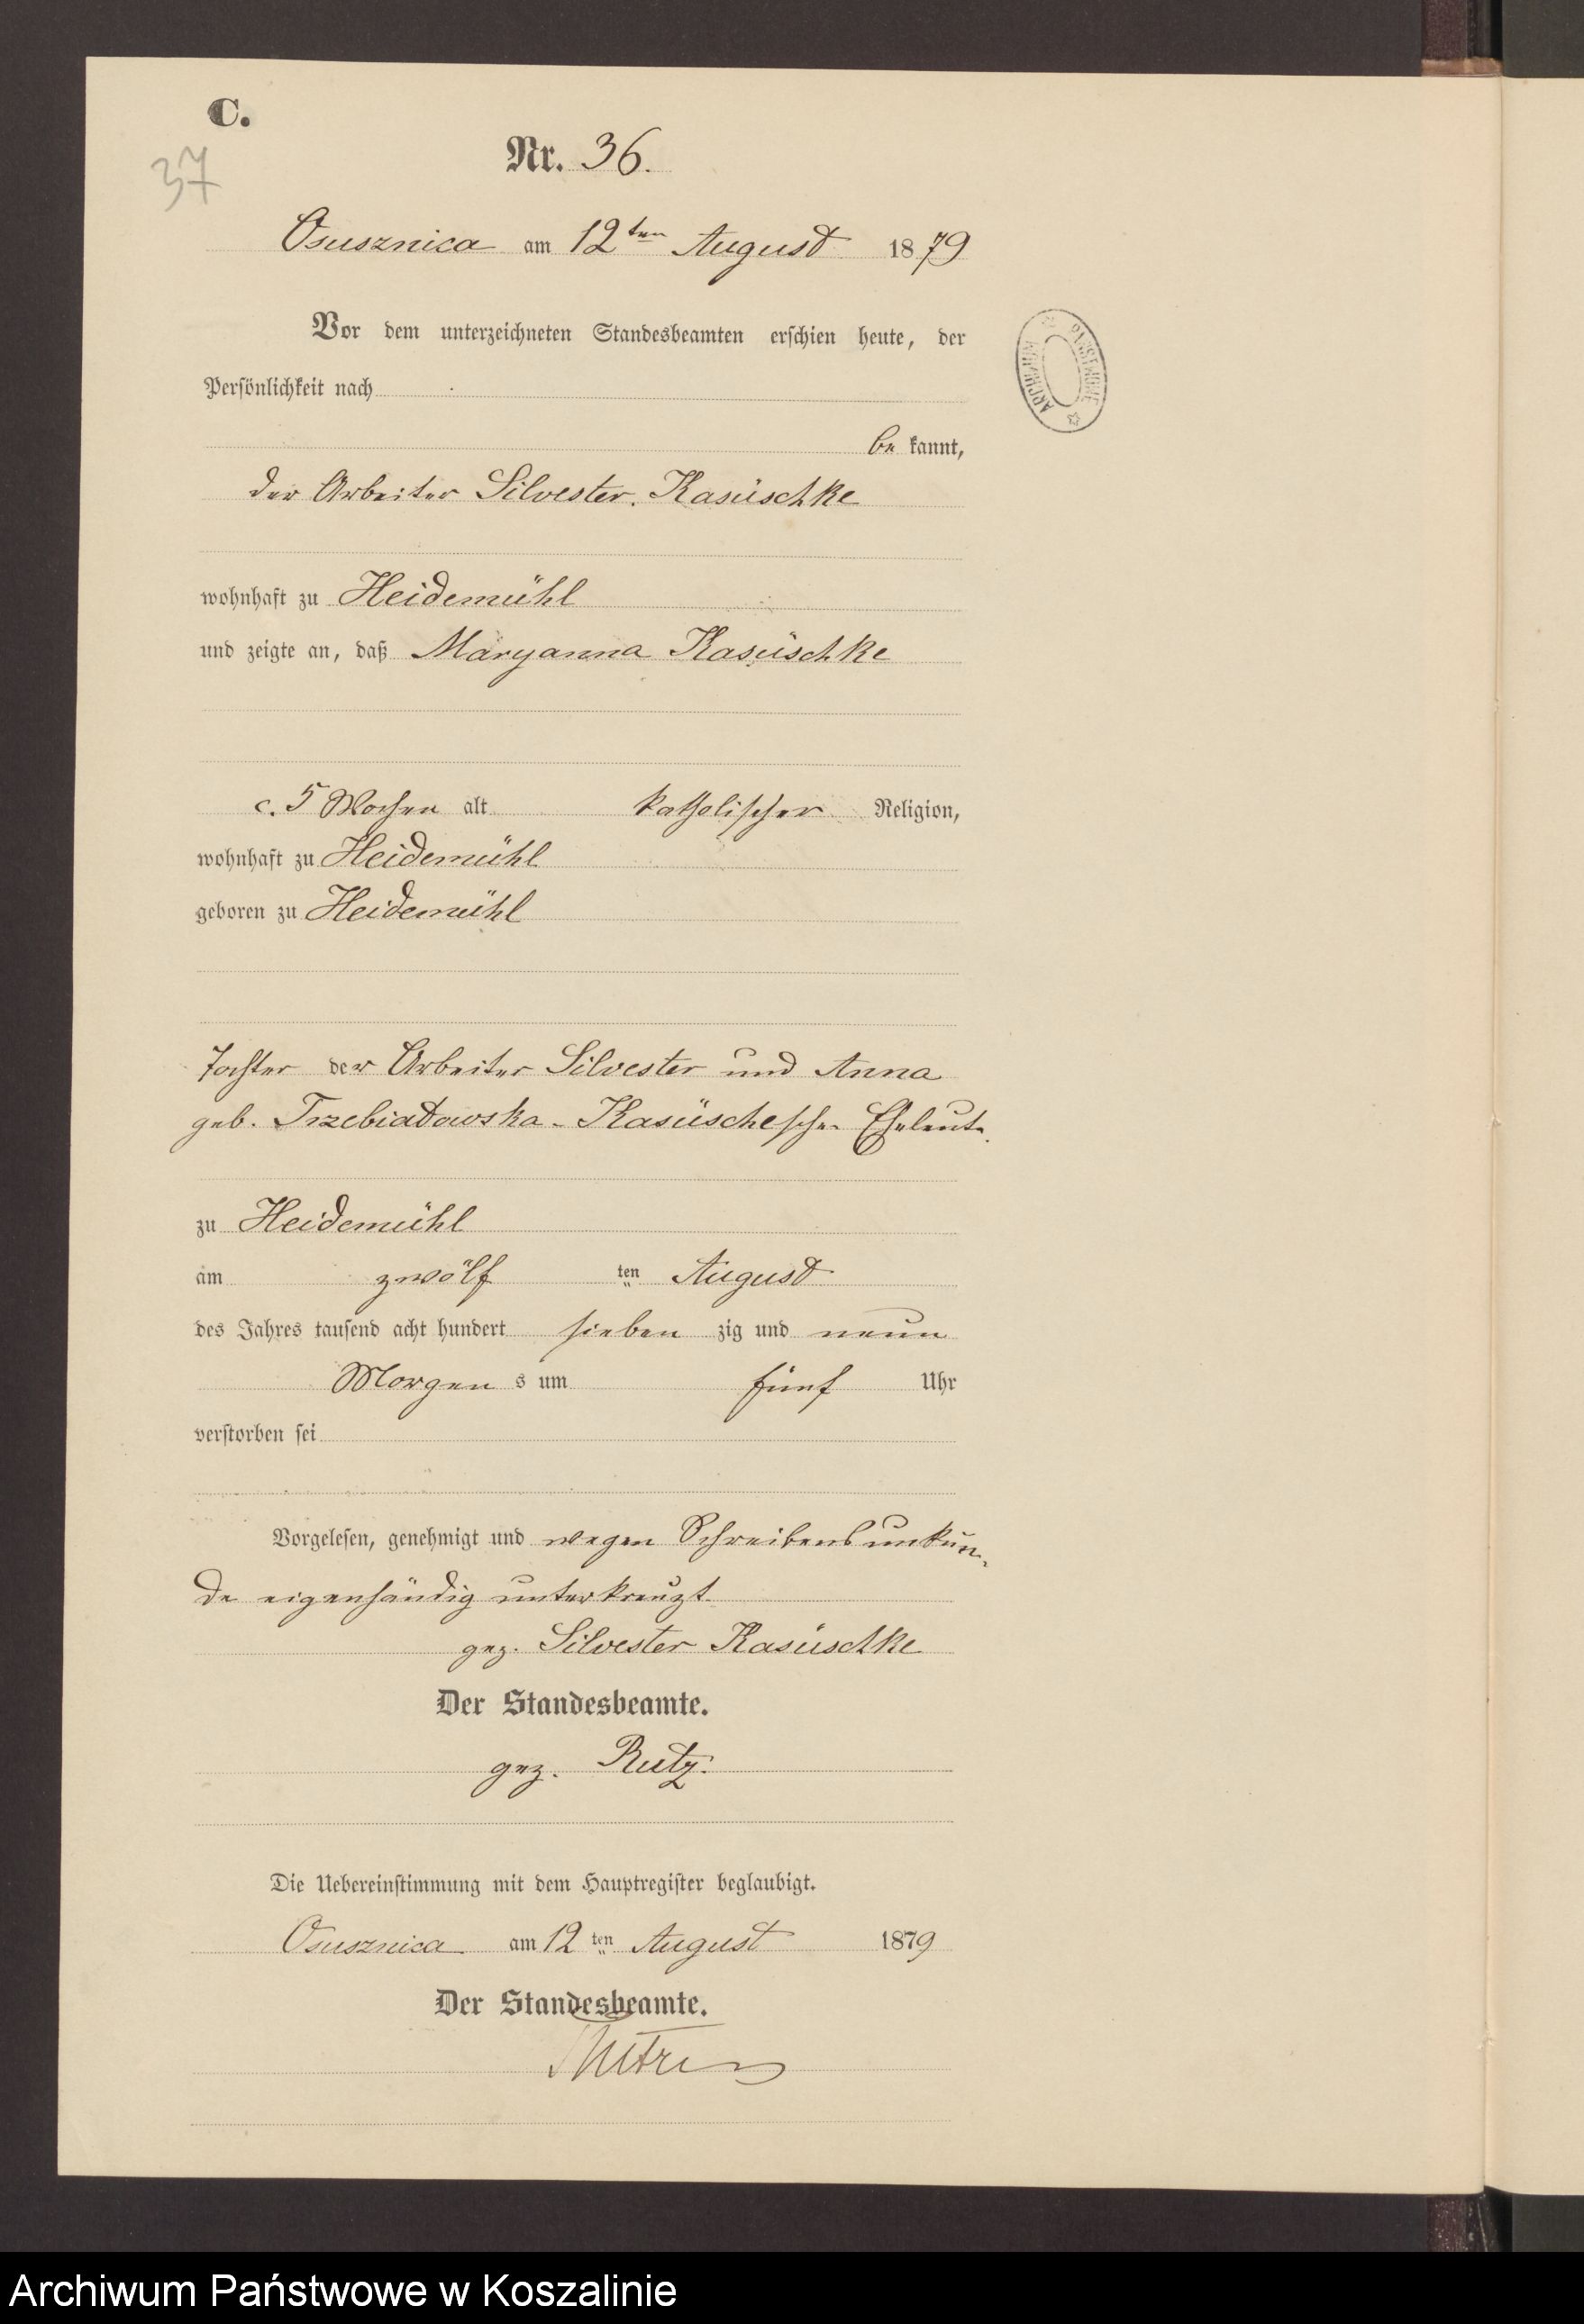 C.
37
Nr. 36.
Osusznica am 12ten August 1879
Vor dem unterzeichneten Standesbeamten erschien heute, der
Persönlichkeit nach
be kannt,
der Arbeiter Silvester Kasüschke
wohnhaft zu Heidemühl
und zeigte an, daß Maryanna Kasüschke
c. 5 Wochen alt katholischer Religion,
wohnhaft zu Heidemühl
geboren zu Heidemühl
Tochter der Arbeiter Silvester und Anna
geb. Trzebiatowska - Kasüscheschen Eheleute
zu Heidemühl
am zwölf ten August
des Jahres tausend acht hundert sieben zig und neun
Morgen s um fünf Uhr
verstorben sei
Vorgelesen, genehmigt und wegen Schreibensunkun-
de eigenhändig unterkreuzt
gez. Silvester Kasüschke
Der Standesbeamte.
gez. Rutz.
Die Uebereinstimmung mit dem Hauptregister beglaubigt.
Osusznica am 12 ten August 1879
Der Standesbeamte.
ARCHIWUM PAŃSTWOWE
Archiwum Państwowe w Koszalinie